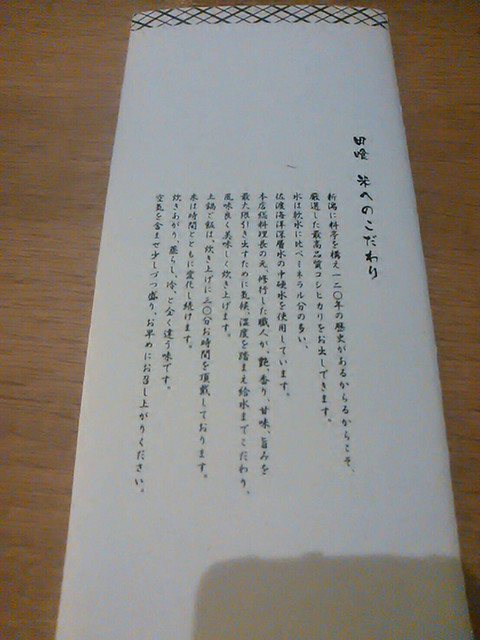 田喰 米へのこだわり
新潟に料亭を構え一二〇年の歴史があるからるからこそ、
厳選した最高品質コシヒカリをお出しできます。
水は軟水に比べミネラル分の多い、
佐渡海洋深層水の中硬水を使用しています。
本店総料理長の元、修行した職人が、艶、香り、甘味、旨みを
最大限引き出すために気候、温度を踏まえ給水までこだわり、
風味良く美味しく炊き上げます。
土鍋ご飯は、炊き上げに三〇分お時間を頂戴しております。
米は時間とともに変化し続けます。
炊きあがり、蒸らし、冷、と全く違う味です。
空気を含ませ少しづつ盛り、お早めにお召し上がりください。